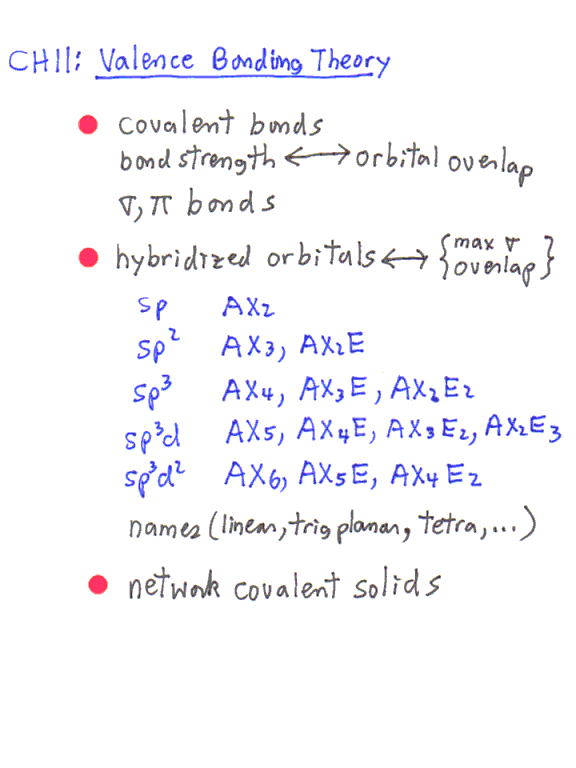 CH11: Valence Bonding Theory
• covalent bonds
bond strength ⟷ orbital overlap
σ, π bonds
• hybridized orbitals ⟷ {max σ overlap}
sp AX₂
sp² AX₃, AX₂E
sp³ AX₄, AX₃E, AX₂E₂
sp³d AX₅, AX₄E, AX₃E₂, AX₂E₃
sp³d² AX₆, AX₅E, AX₄E₂
names (linear, trig planar, tetra, ...)
• network covalent solids